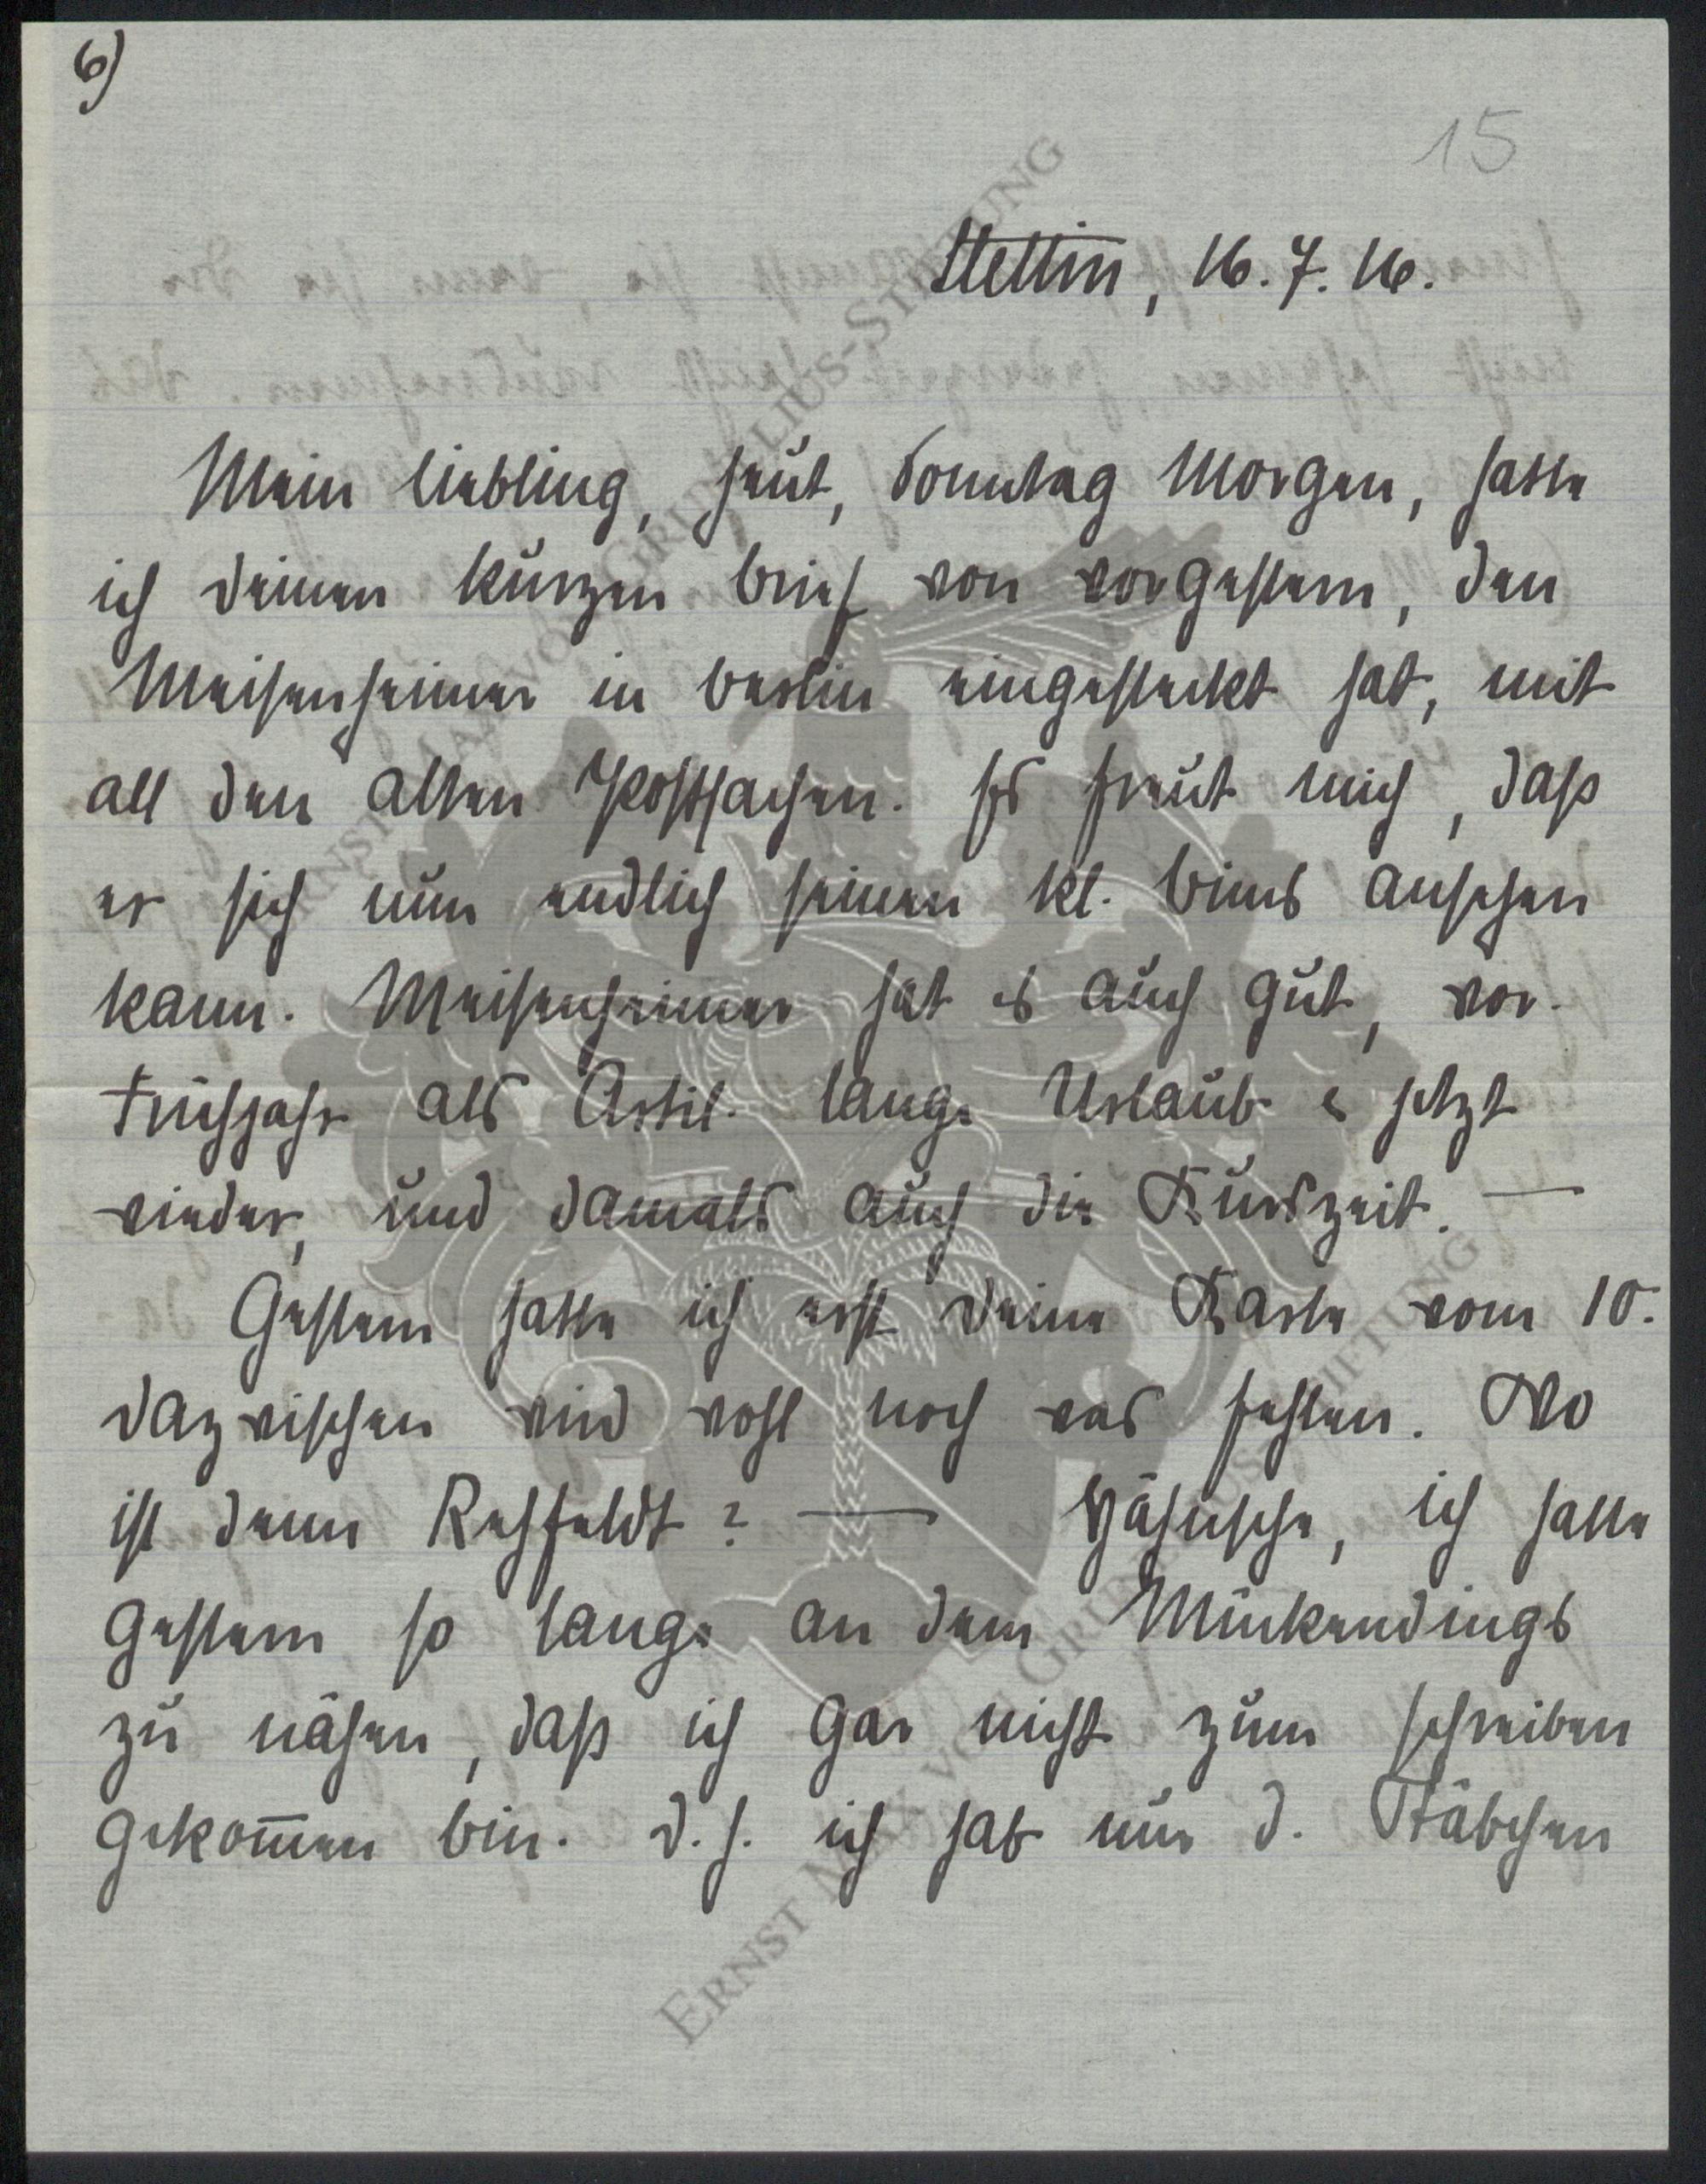 6)
15
Stettin, 16.7.16.
Mein Liebling, heut, Sonntag Morgen, hatte
ich deinen kurzen Brief von vorgestern, den
Meisenheimer in Berlin eingesteckt hat, mit
all den alten Postsachen. Es freut mich, daß
er sich nun endlich seinen kl. Bims ansehen
kann. Meisenheimer hat es auch gut, vor.
Frühjahr als Artil. lange Urlaub & jetzt
wieder, und damals auch die Kurszeit. —
Gestern hatte ich erst deine Karte vom 10.
dazwischen wird wohl noch was fehlen. Wo
ist denn Rehfeldt? — ich hatte
gestern so lange an dem Mückendings
zu nähen, daß ich gar nicht zum schreiben
gekom̄en bin. d.h. ich hab nur d. Stäbchen
ERNST MAX VON GRUNELIUS-STIFTUNG
ERNST MAX VON GRUNELIUS-STIFTUNG